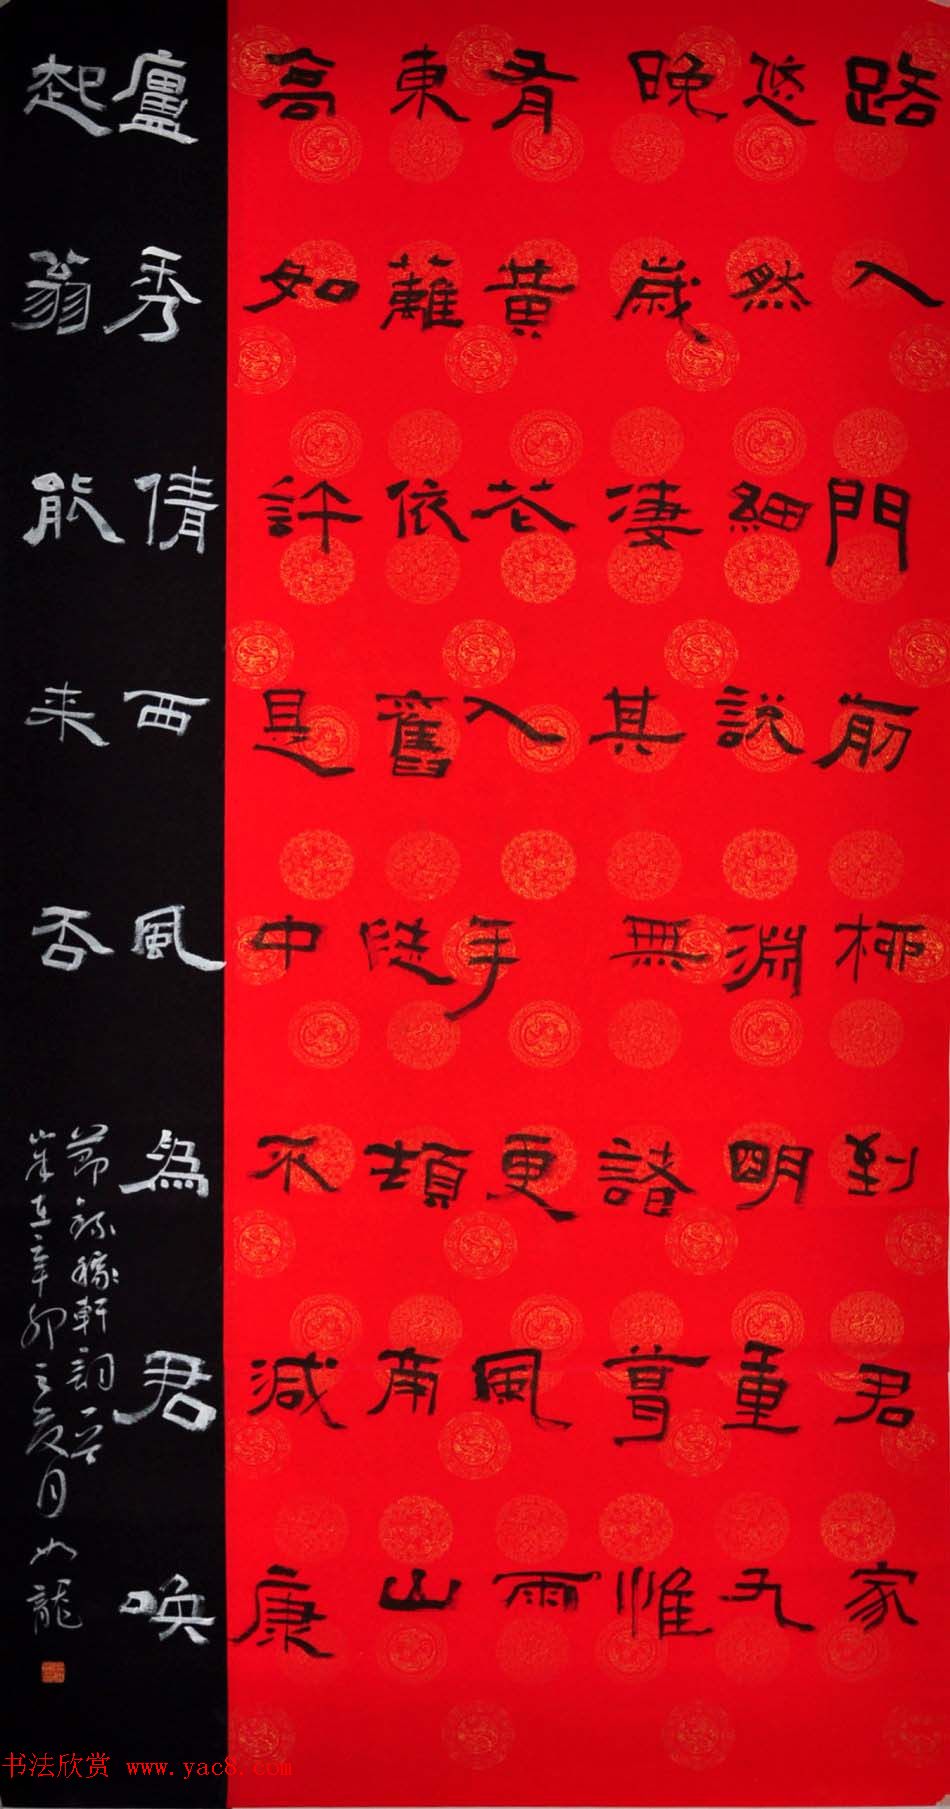 路入門前柳到君家
悠然細説淵明重九
晚歲凄其無諸葛惟
有黃花入手更風雨
東籬依舊陡頓南山
高如許是中不減康
廬秀倩西風為君喚
起翁能来否
節錄稼軒詞一首
歲在辛卯之夏月如龍
书法欣赏 www.yac8.com